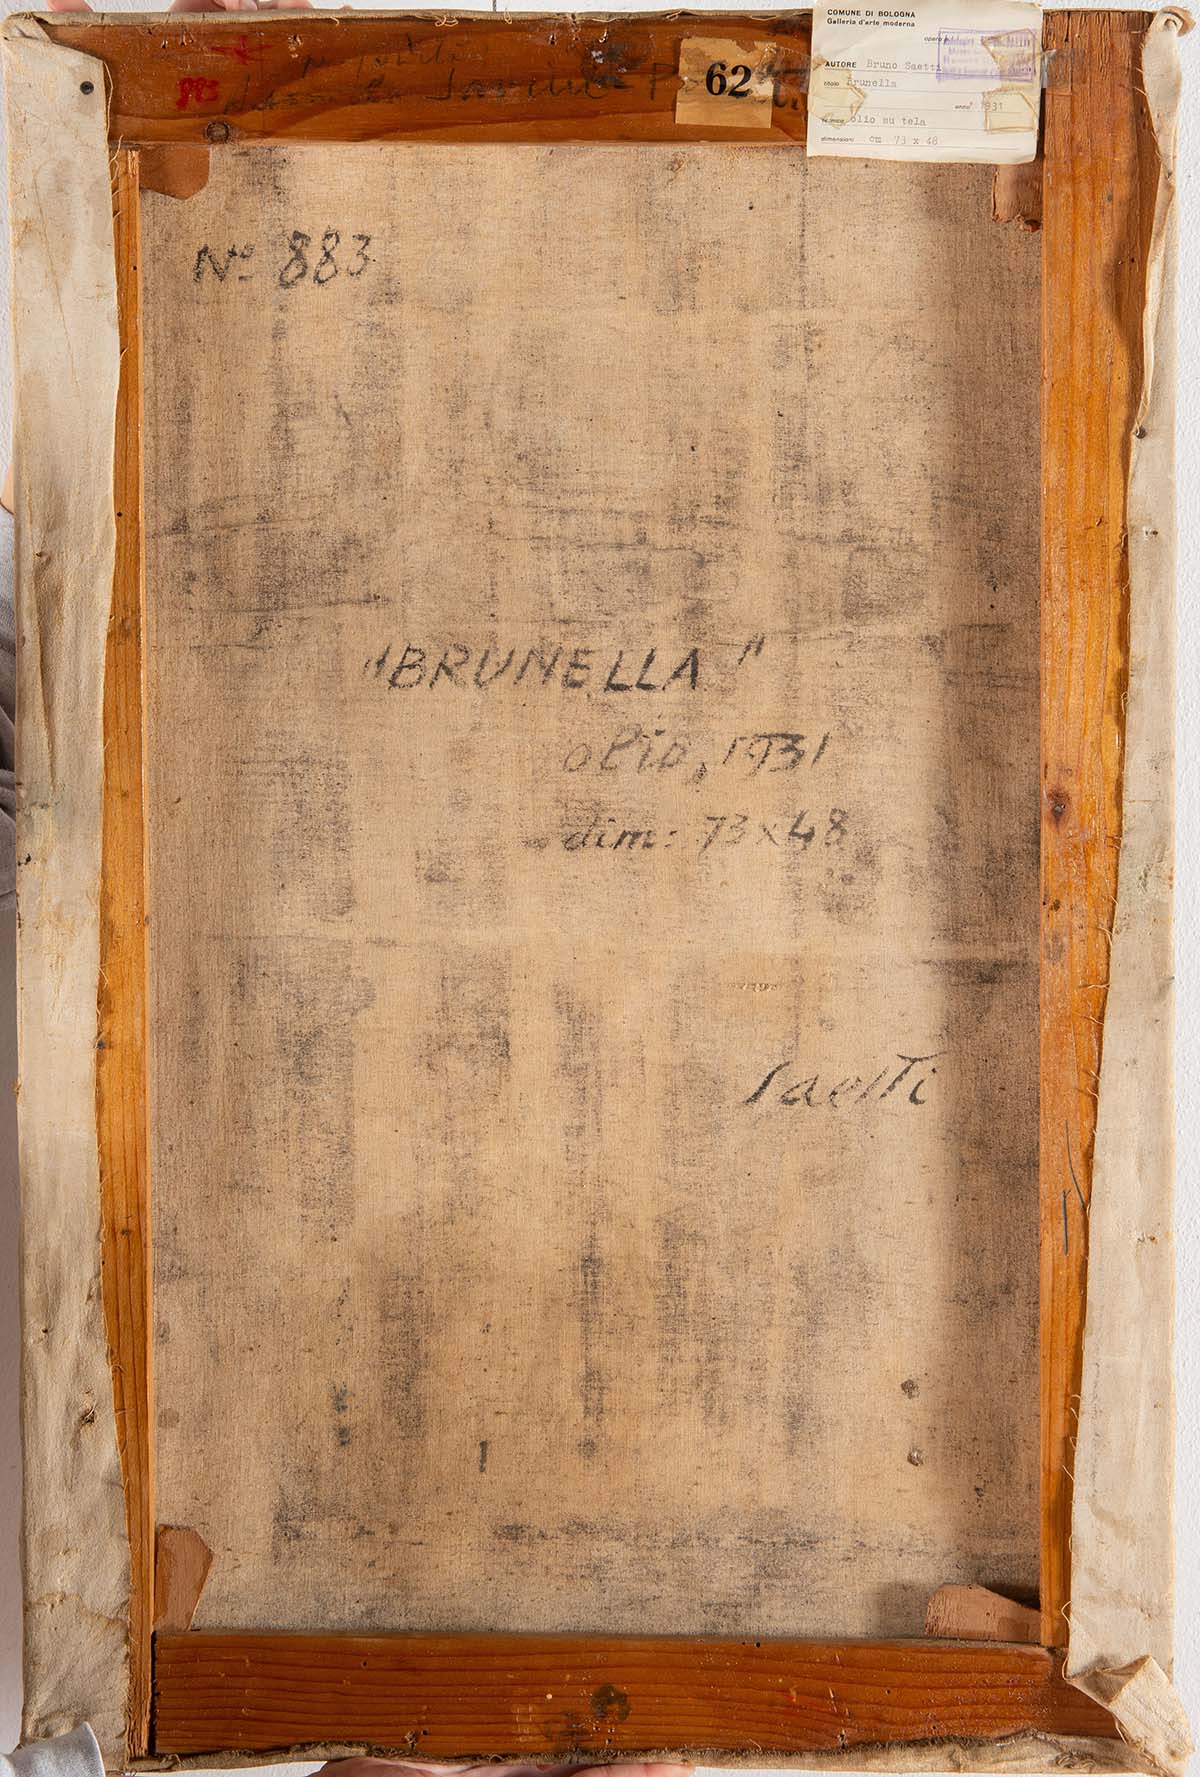 COMUNE DI BOLOGNA
Galleria d'arte moderna
opera
AUTORE Bruno Saetti
titolo Brunella
anno 1931
tecnica olio su tela
dimensioni cm 73 x 48
62
883
No 883
"BRUNELLA"
olio, 1931
dim: 73x48
Saetti